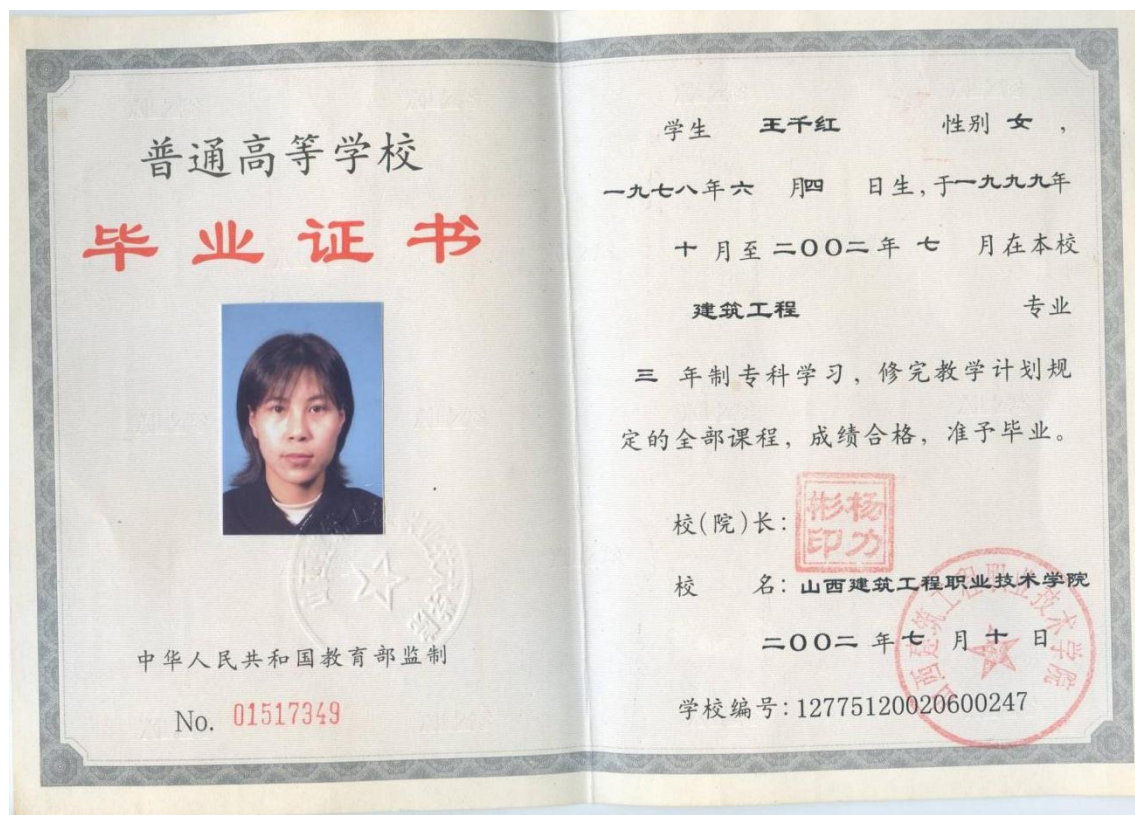 普通高等学校
毕业证书
中华人民共和国教育部监制
No. 01517349
学生 王千红 性别 女 ,
一九七八年六 月四 日生,于一九九九年
十 月至 二〇〇二 年 七 月在本校
建筑工程 专业
三 年制专科学习，修完教学计划规
定的全部课程，成绩合格，准予毕业。
校(院)长：
杨力彬印
校 名：山西建筑工程职业技术学院
二〇〇二 年七 月 十 日
山西建筑工程职业技术学院
学校编号：12775120020600247